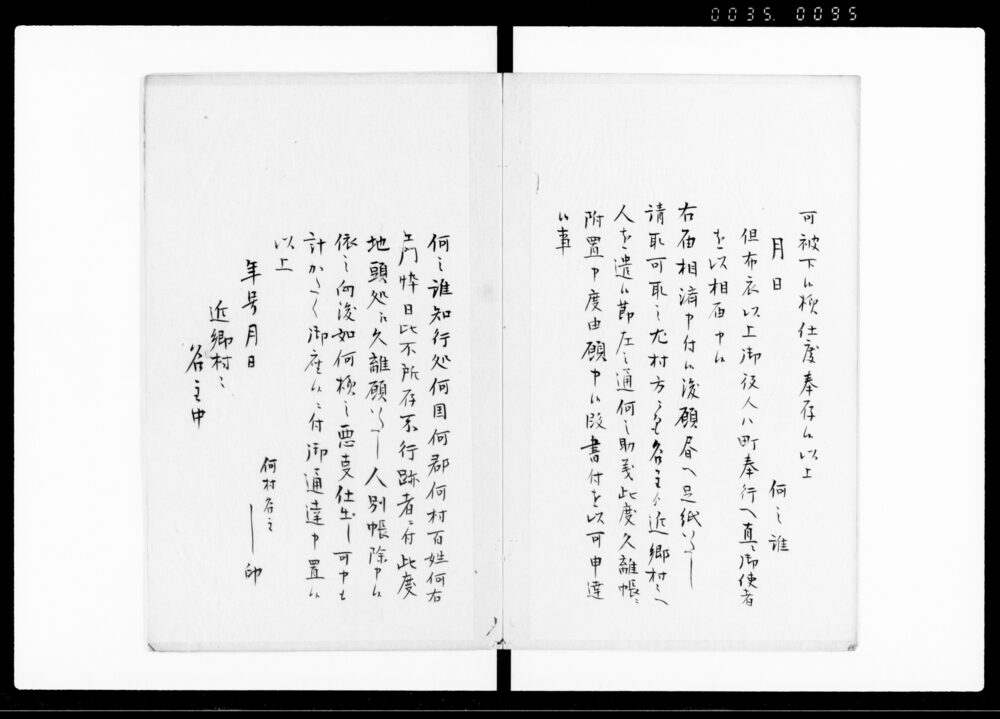 0035. 0095
可被下候様仕度奉存候以上
月日
何之誰
但布衣以上御役人ハ町奉行へ直ニ御使者
を以相届申候
右届相済申付候後願届へ足紙いたし
請取可取之尤村方ニ而も名主より近郷村之へ
人を遣候節左之通何之助義此度久離帳ニ
附置申度由願申候段書付を以可申達
候事
何之誰知行処何国何郡何村百姓何右
衛門悴日比不所存不行跡者ニ付此度
地頭処江久離願いたし人別帳除申候
依之向後如何様之悪事仕出し可申も
計かたく御座候ニ付御通達申置候
以上
年号月日
何村名主
印
近郷村之
名主中